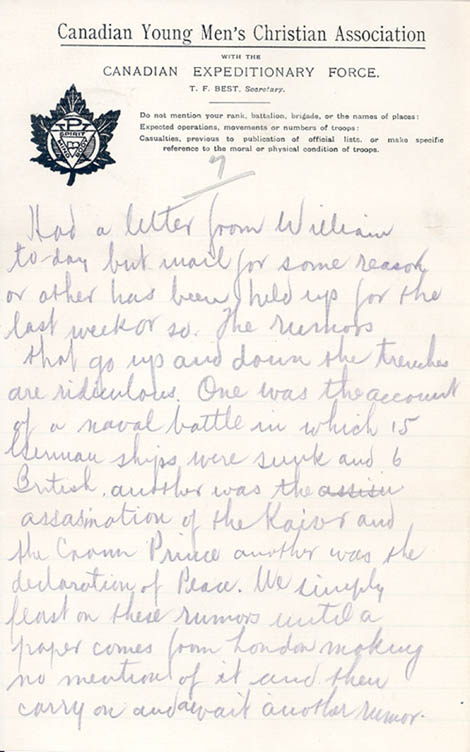 Canadian Young Men's Christian Association
WITH THE
CANADIAN EXPEDITIONARY FORCE.
T. F. BEST, Secretary.
Do not mention your rank, battalion, brigade, or the names of places:
Expected operations, movements or numbers of troops:
Casualties, previous to publication of official lists, or make specific
reference to the moral or physical condition of troops.
SPIRIT
MIND
BODY
7
Had a letter from William
to-day but mail for some reason
or other has been held up for the
last week or so. The rumors
that go up and down the trenches
are ridiculous. One was the account
of a naval battle in which 15
German ships were sunk and 6
British, another was the assisin
assasination of the Kaiser and
the Crown Prince another was the
declaration of Peace. We simply
feast on these rumors until a
paper comes from London making
no mention of it and then
carry on and await another rumor.